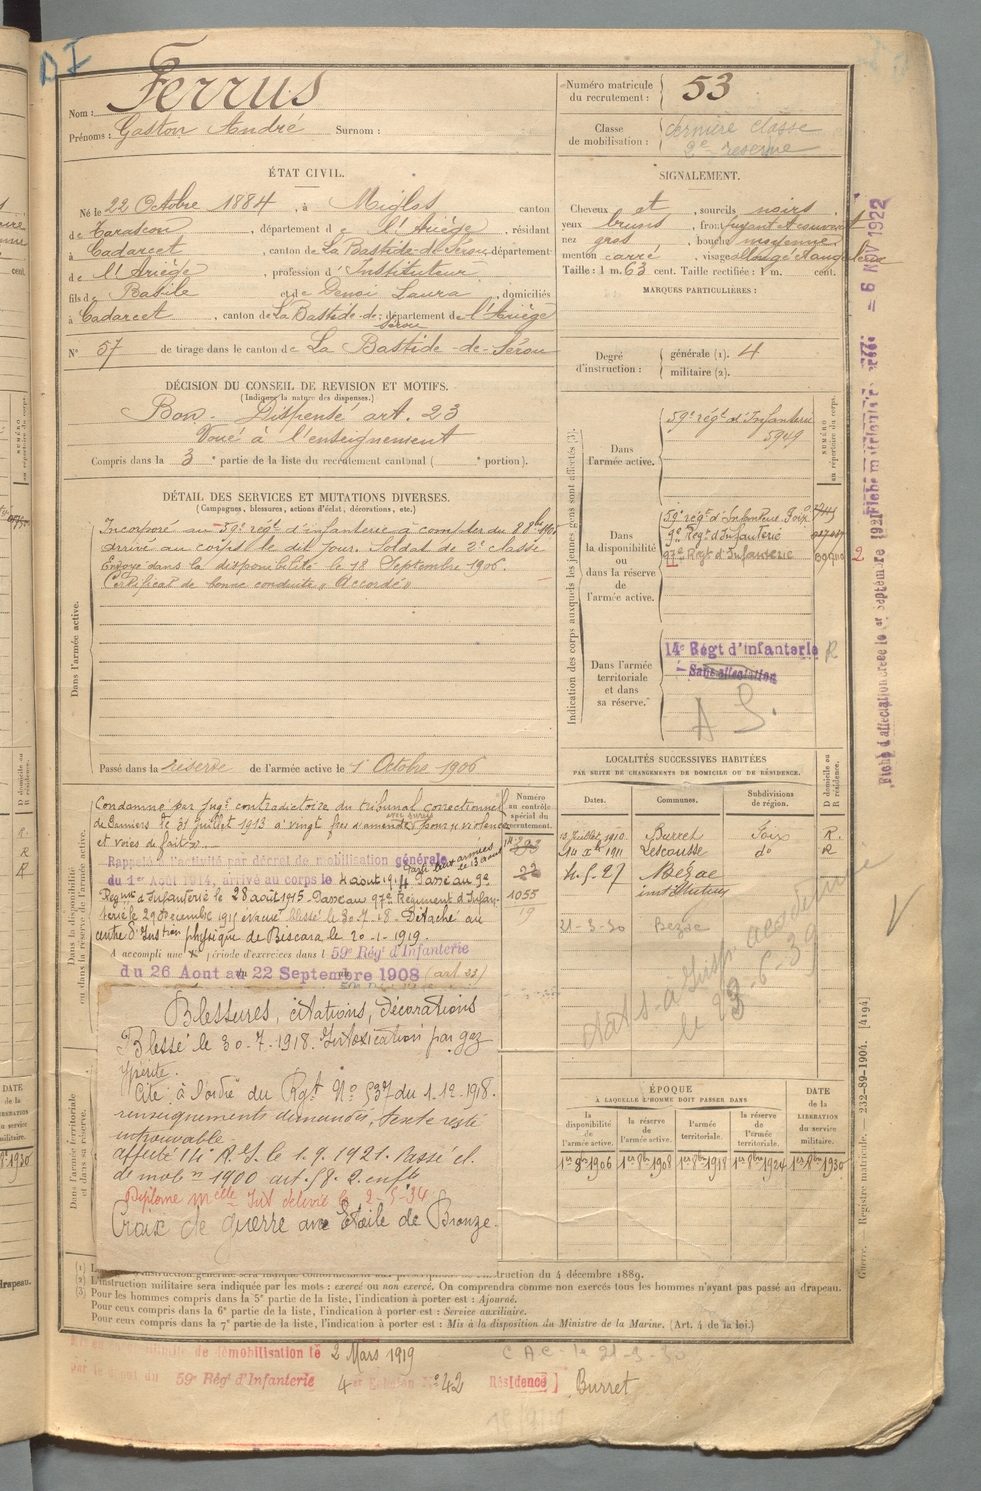 D I
Nom : Ferrus
Prénoms : Gaston André Surnom :
Numéro matricule du recrutement : 53
Classe de mobilisation : dernière classe
2e reserve
ÉTAT CIVIL.
Né le 22 Octobre 1884, à Miglos canton
de Tarascon, département de l'Ariège, résidant
à Cadarcet, canton de La Bastide-de-Sérou département
de l'Ariège, profession d'Instituteur
fils de Babile et de Denoi Laura, domiciliés
à Cadarcet, canton de La Bastide-de-Sérou département de l'Ariège
N° 57 de tirage dans le canton de La Bastide-de-Sérou
SIGNALEMENT.
Cheveux et, sourcils noirs
yeux bruns, front fuyant et couvert
nez gros, bouche moyenne
menton carré, visage allongé et anguleux
Taille : 1 m. 63 cent. Taille rectifiée : 1 m. cent.
MARQUES PARTICULIÈRES :
Degré d'instruction : générale (1). 4
militaire (2).
DÉCISION DU CONSEIL DE REVISION ET MOTIFS.
(Indiquer la nature des dispenses.)
Bon. Dispensé art. 23
Voué à l'enseignement
Compris dans la 3e partie de la liste du recrutement cantonal ( e portion).
DÉTAIL DES SERVICES ET MUTATIONS DIVERSES.
(Campagnes, blessures, actions d'éclat, décorations, etc.)
Dans l'armée active.
Incorporé au 59e régt d'infanterie à compter du 8 8bre
arrivé au corps le dit jour. Soldat de 2e classe
Envoyé dans la disponibilité le 18 Septembre 1906.
Certificat de bonne conduite "Accordé"
Passé dans la réserve de l'armée active le 1er Octobre 1906
Indication des corps auxquels les jeunes gens sont affectés (3).
NUMÉRO au répertoire du corps.
Dans l'armée active.
59e régt d'Infanterie
5949
Dans la disponibilité ou dans la réserve de l'armée active.
59e régt d'Infanterie Foix
9e Régt d'Infanterie
97e Régt d'Infanterie
Dans l'armée territoriale et dans sa réserve.
14e Régt d'infanterie R
Sans affectation
A S.
= 6 NOV 1922
Dans la disponibilité ou dans la réserve de l'armée active.
Condamné par jugt contradictoire du tribunal correctionnel
de Pamiers le 31 juillet 1913 à vingt frs d'amende avec sursis pour violences
et voies de faits.
Rappelé à l'activité par décret de mobilisation générale
du 1er Août 1914, arrivé au corps le 4 août 1914 Passé au 9e
Régiment d'Infanterie le 28 août 1915. Passé au 97e Régiment d'Infanterie
le 29 Décembre 1915 évacué blessé le 30.7.18. Détaché au
centre d'Instion physique de Biscara le 20-1-1919.
A accompli une 1re période d'exercices dans l 59e Régt d'Infanterie
du 26 Aout au 22 Septembre 1908 (art 23)
Numéro au contrôle spécial du recrutement.
1055
19
LOCALITÉS SUCCESSIVES HABITÉES
PAR SUITE DE CHANGEMENTS DE DOMICILE OU DE RÉSIDENCE.
Dates. Communes. Subdivisions de région. D domicile ou R résidence.
13 Juillet 1910 Burret Foix R.
14 Xbre 1911 Lescousse do R
4.5.27 Bézac
instituteur
21-3-30 Bezac
le 23-6-39
Dans l'armée territoriale et dans sa réserve.
Blessures, citations, décorations
Blessé le 30-7-1918. Intoxication par gaz
ypérite.
Cité à l'ordre du Rgt N° 537 du 1.12-1918.
renseignements demandés, texte resté
introuvable
affecté 14e R.I. le 1.9.1921. Passé cl.
de mobon 1900 art. 58. 2 enfts
Diplôme Melle Int délivré le 2-5-34
Croix de guerre avec Etoile de Bronze.
ÉPOQUE
À LAQUELLE L'HOMME DOIT PASSER DANS
la disponibilité de l'armée active. la réserve de l'armée active. l'armée territoriale. la réserve de l'armée territoriale.
DATE de la LIBÉRATION du service militaire.
1er 8bre 1906 1er 8bre 1908 1er 8bre 1918 1er 8bre 1924 1er 8bre 1930
Guerre. — Registre matricule. — 232-89-1904. [4194]
instruction du 4 décembre 1889.
(2) L'instruction militaire sera indiquée par les mots : exercé ou non exercé. On comprendra comme non exercés tous les hommes n'ayant pas passé au drapeau.
(3) Pour les hommes compris dans la 5e partie de la liste, l'indication à porter est : Ajourné.
Pour ceux compris dans la 6e partie de la liste, l'indication à porter est : Service auxiliaire.
Pour ceux compris dans la 7e partie de la liste, l'indication à porter est : Mis à la disposition du Ministre de la Marine. (Art. 4 de la loi.)
de démobilisation le 2 Mars 1919
C A C. le 21-3-30
59e Régt d'Infanterie 4e Echelon N° 42 Résidence] Burret